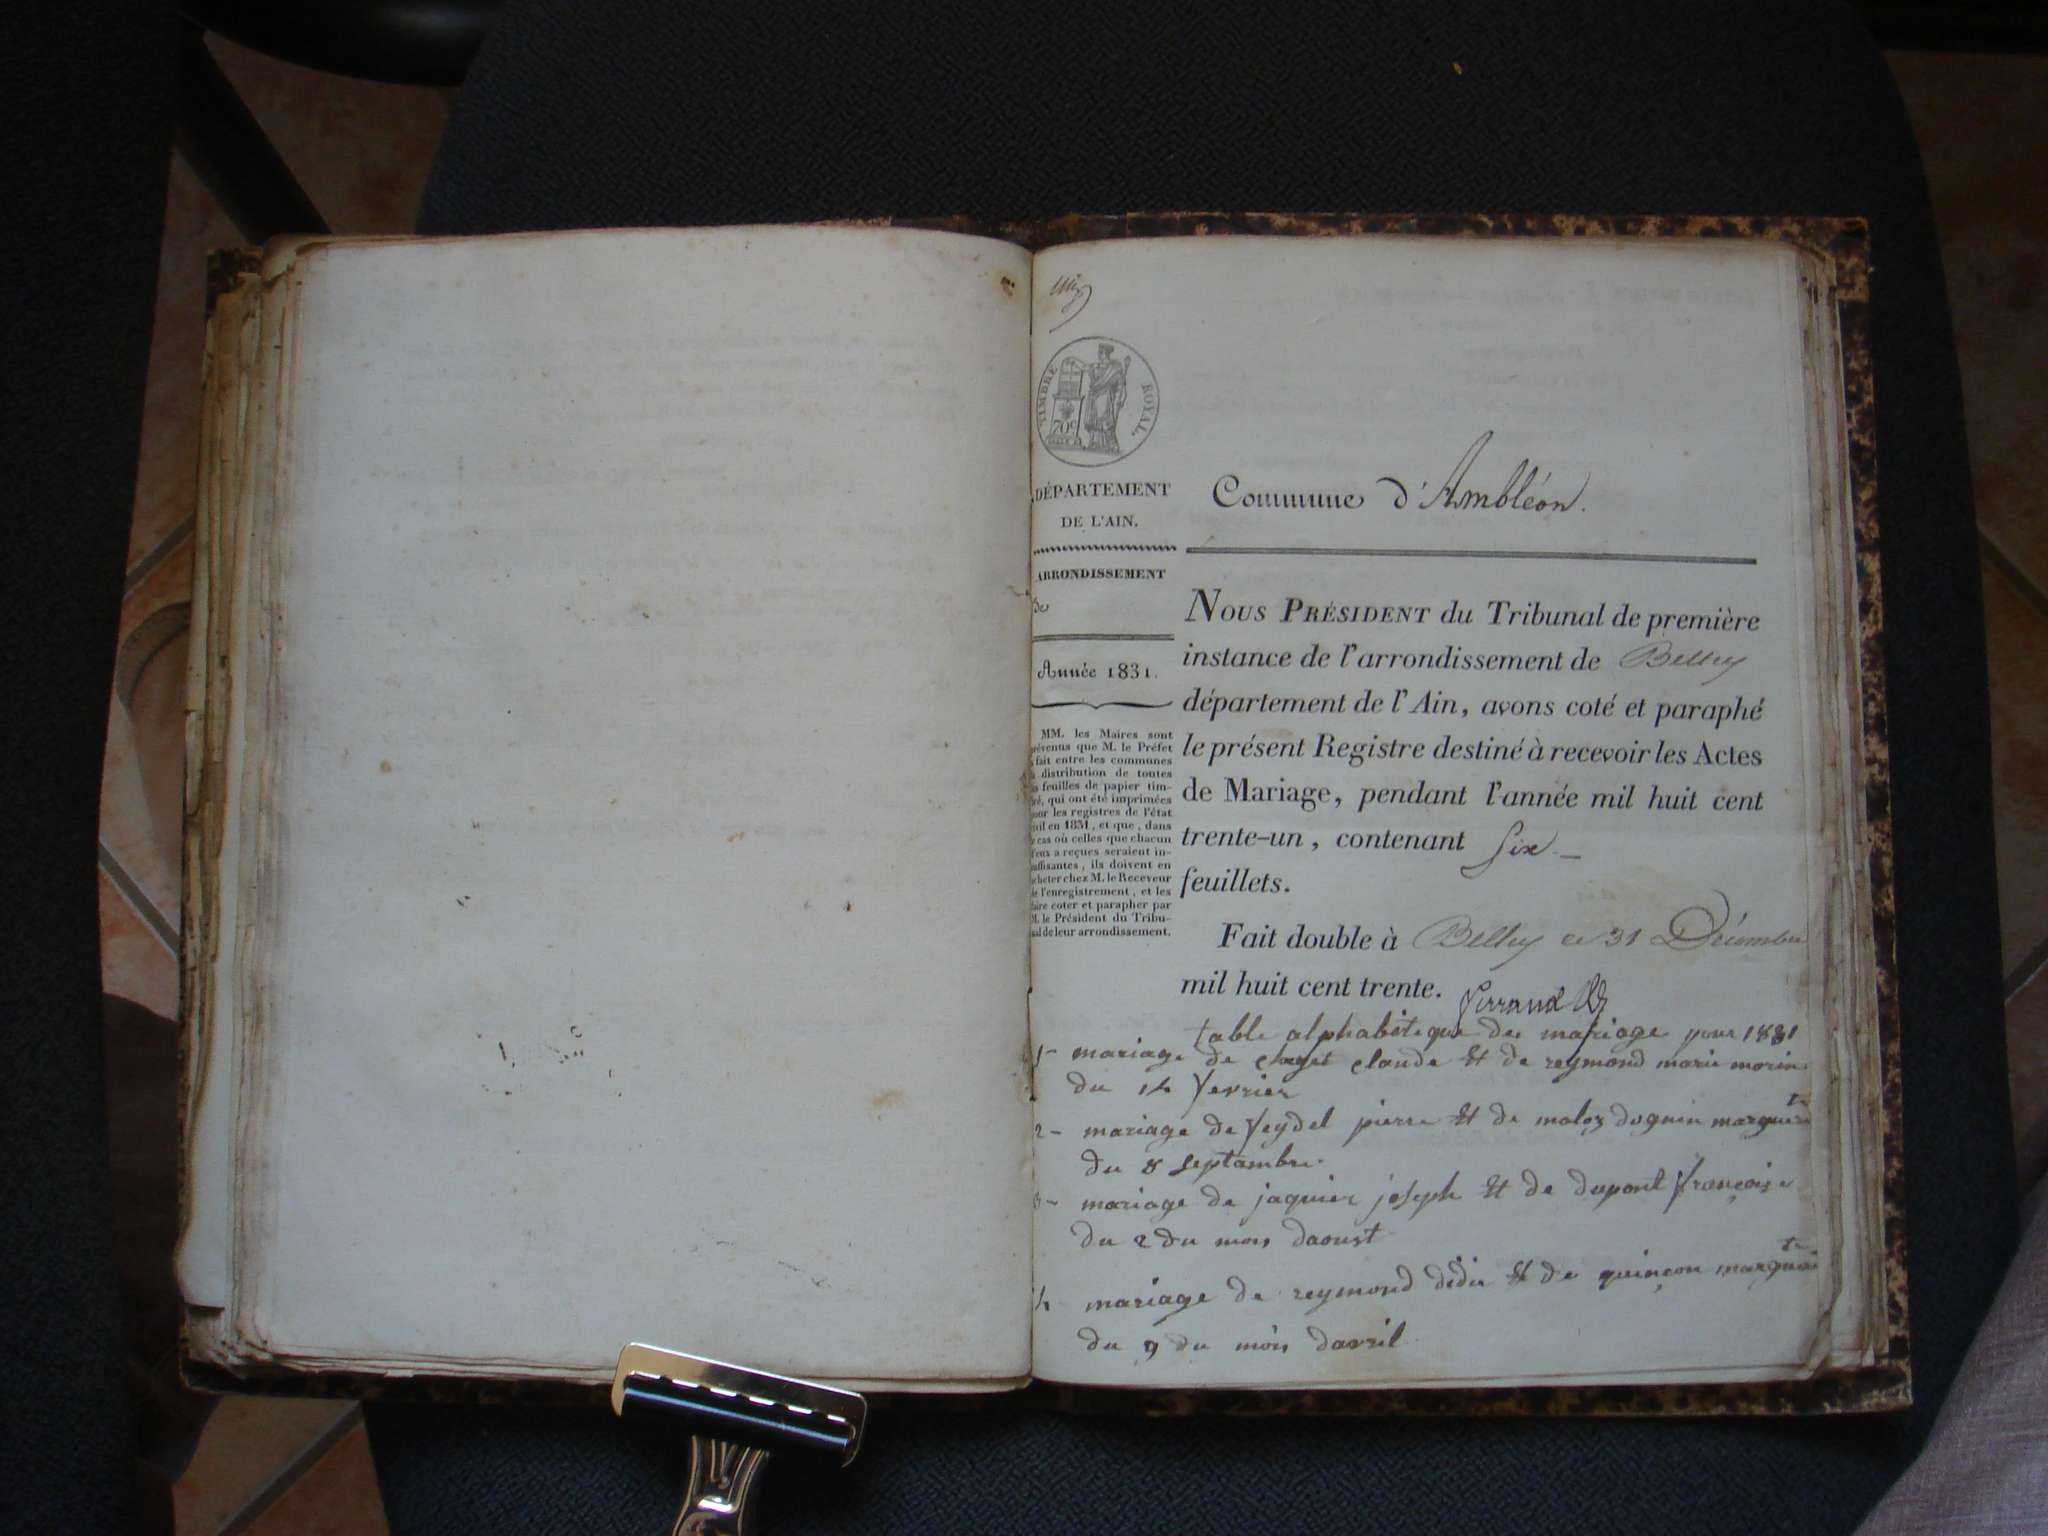 TIMBRE ROYAL.
70c
DÉPARTEMENT
DE L'AIN.
ARRONDISSEMENT
de
Année 1831.
MM. les Maires sont
prévenus que M. le Préfet
a fait entre les communes
la distribution de toutes
les feuilles de papier tim-
bré, qui ont été imprimées
pour les registres de l'état
civil en 1831, et que, dans
le cas où celles que chacun
d'eux a reçues seraient in-
suffisantes, ils doivent en
acheter chez M. le Receveur
de l'enregistrement, et les
faire coter et parapher par
M. le Président du Tribu-
nal de leur arrondissement.
Commune d'Ambléon.
NOUS PRÉSIDENT du Tribunal de première
instance de l'arrondissement de Belley
département de l'Ain, avons coté et paraphé
le présent Registre destiné à recevoir les Actes
de Mariage, pendant l'année mil huit cent
trente-un, contenant Six
feuillets.
Fait double à Belley ce 31 Décembre
mil huit cent trente.
table alphabétique de mariage pour 1831
1- mariage de claude et de reymond marie
du 14 fevrier
2- mariage de feydel pierre et de
du 8 septambre
3- mariage de jaquier joseph et de dupont françoise
du 2 du mois daoust
4 mariage de reymond didier et de quinçon
du 9 du mois davril